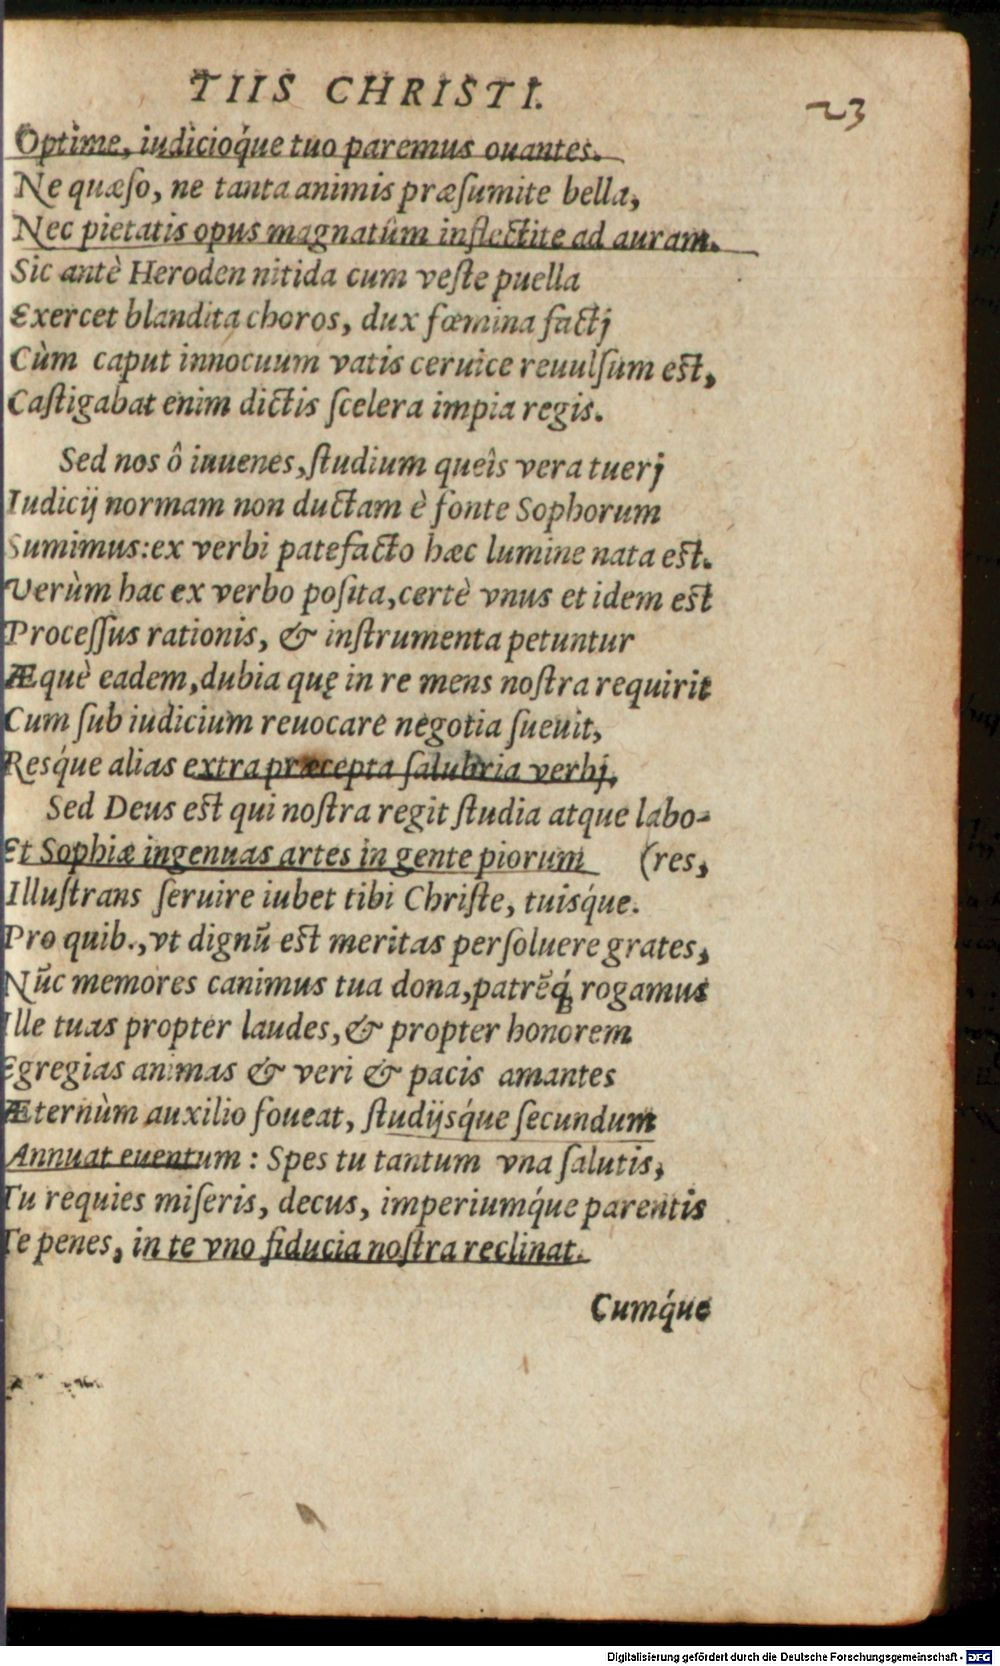 TIIS CHRISTI.
23
Optimè, iudicioq́ue tuo paremus ouantes.
Ne quæso, ne tanta animis præsumite bella,
Nec pietatis opus magnatûm inflectite ad auram.
Sic antè Heroden nitida cum veste puella
Exercet blandita choros, dux fœmina factj
Cùm caput innocuum vatis ceruice reuulsum est,
Castigabat enim dictis scelera impia regis.
Sed nos ô iuuenes, studium queîs vera tuerj
Iudicij normam non ductam è fonte Sophorum
Sumimus: ex verbi patefacto hæc lumine nata est.
Verùm hac ex verbo posita, certè vnus et idem est
Processus rationis, & instrumenta petuntur
Æquè eadem, dubia quę in re mens nostra requirit
Cum sub iudicium reuocare negotia sueuit,
Resq́ue alias extra præcepta salubria verbj.
Sed Deus est qui nostra regit studia atque labo-
Et Sophiæ ingenuas artes in gente piorum (res,
Illustrans seruire iubet tibi Christe, tuisq́ue.
Pro quib., vt dignũ est meritas persoluere grates,
Nũc memores canimus tua dona, patrẽq́; rogamus
Ille tuas propter laudes, & propter honorem
Egregias animas & veri & pacis amantes
Æternùm auxilio foueat, studijsq́ue secundum
Annuat euentum : Spes tu tantum vna salutis,
Tu requies miseris, decus, imperiumq́ue parentis
Te penes, in te vno fiducia nostra reclinat.
Cumq́ue
Digitalisierung gefördert durch die Deutsche Forschungsgemeinschaft - DFG